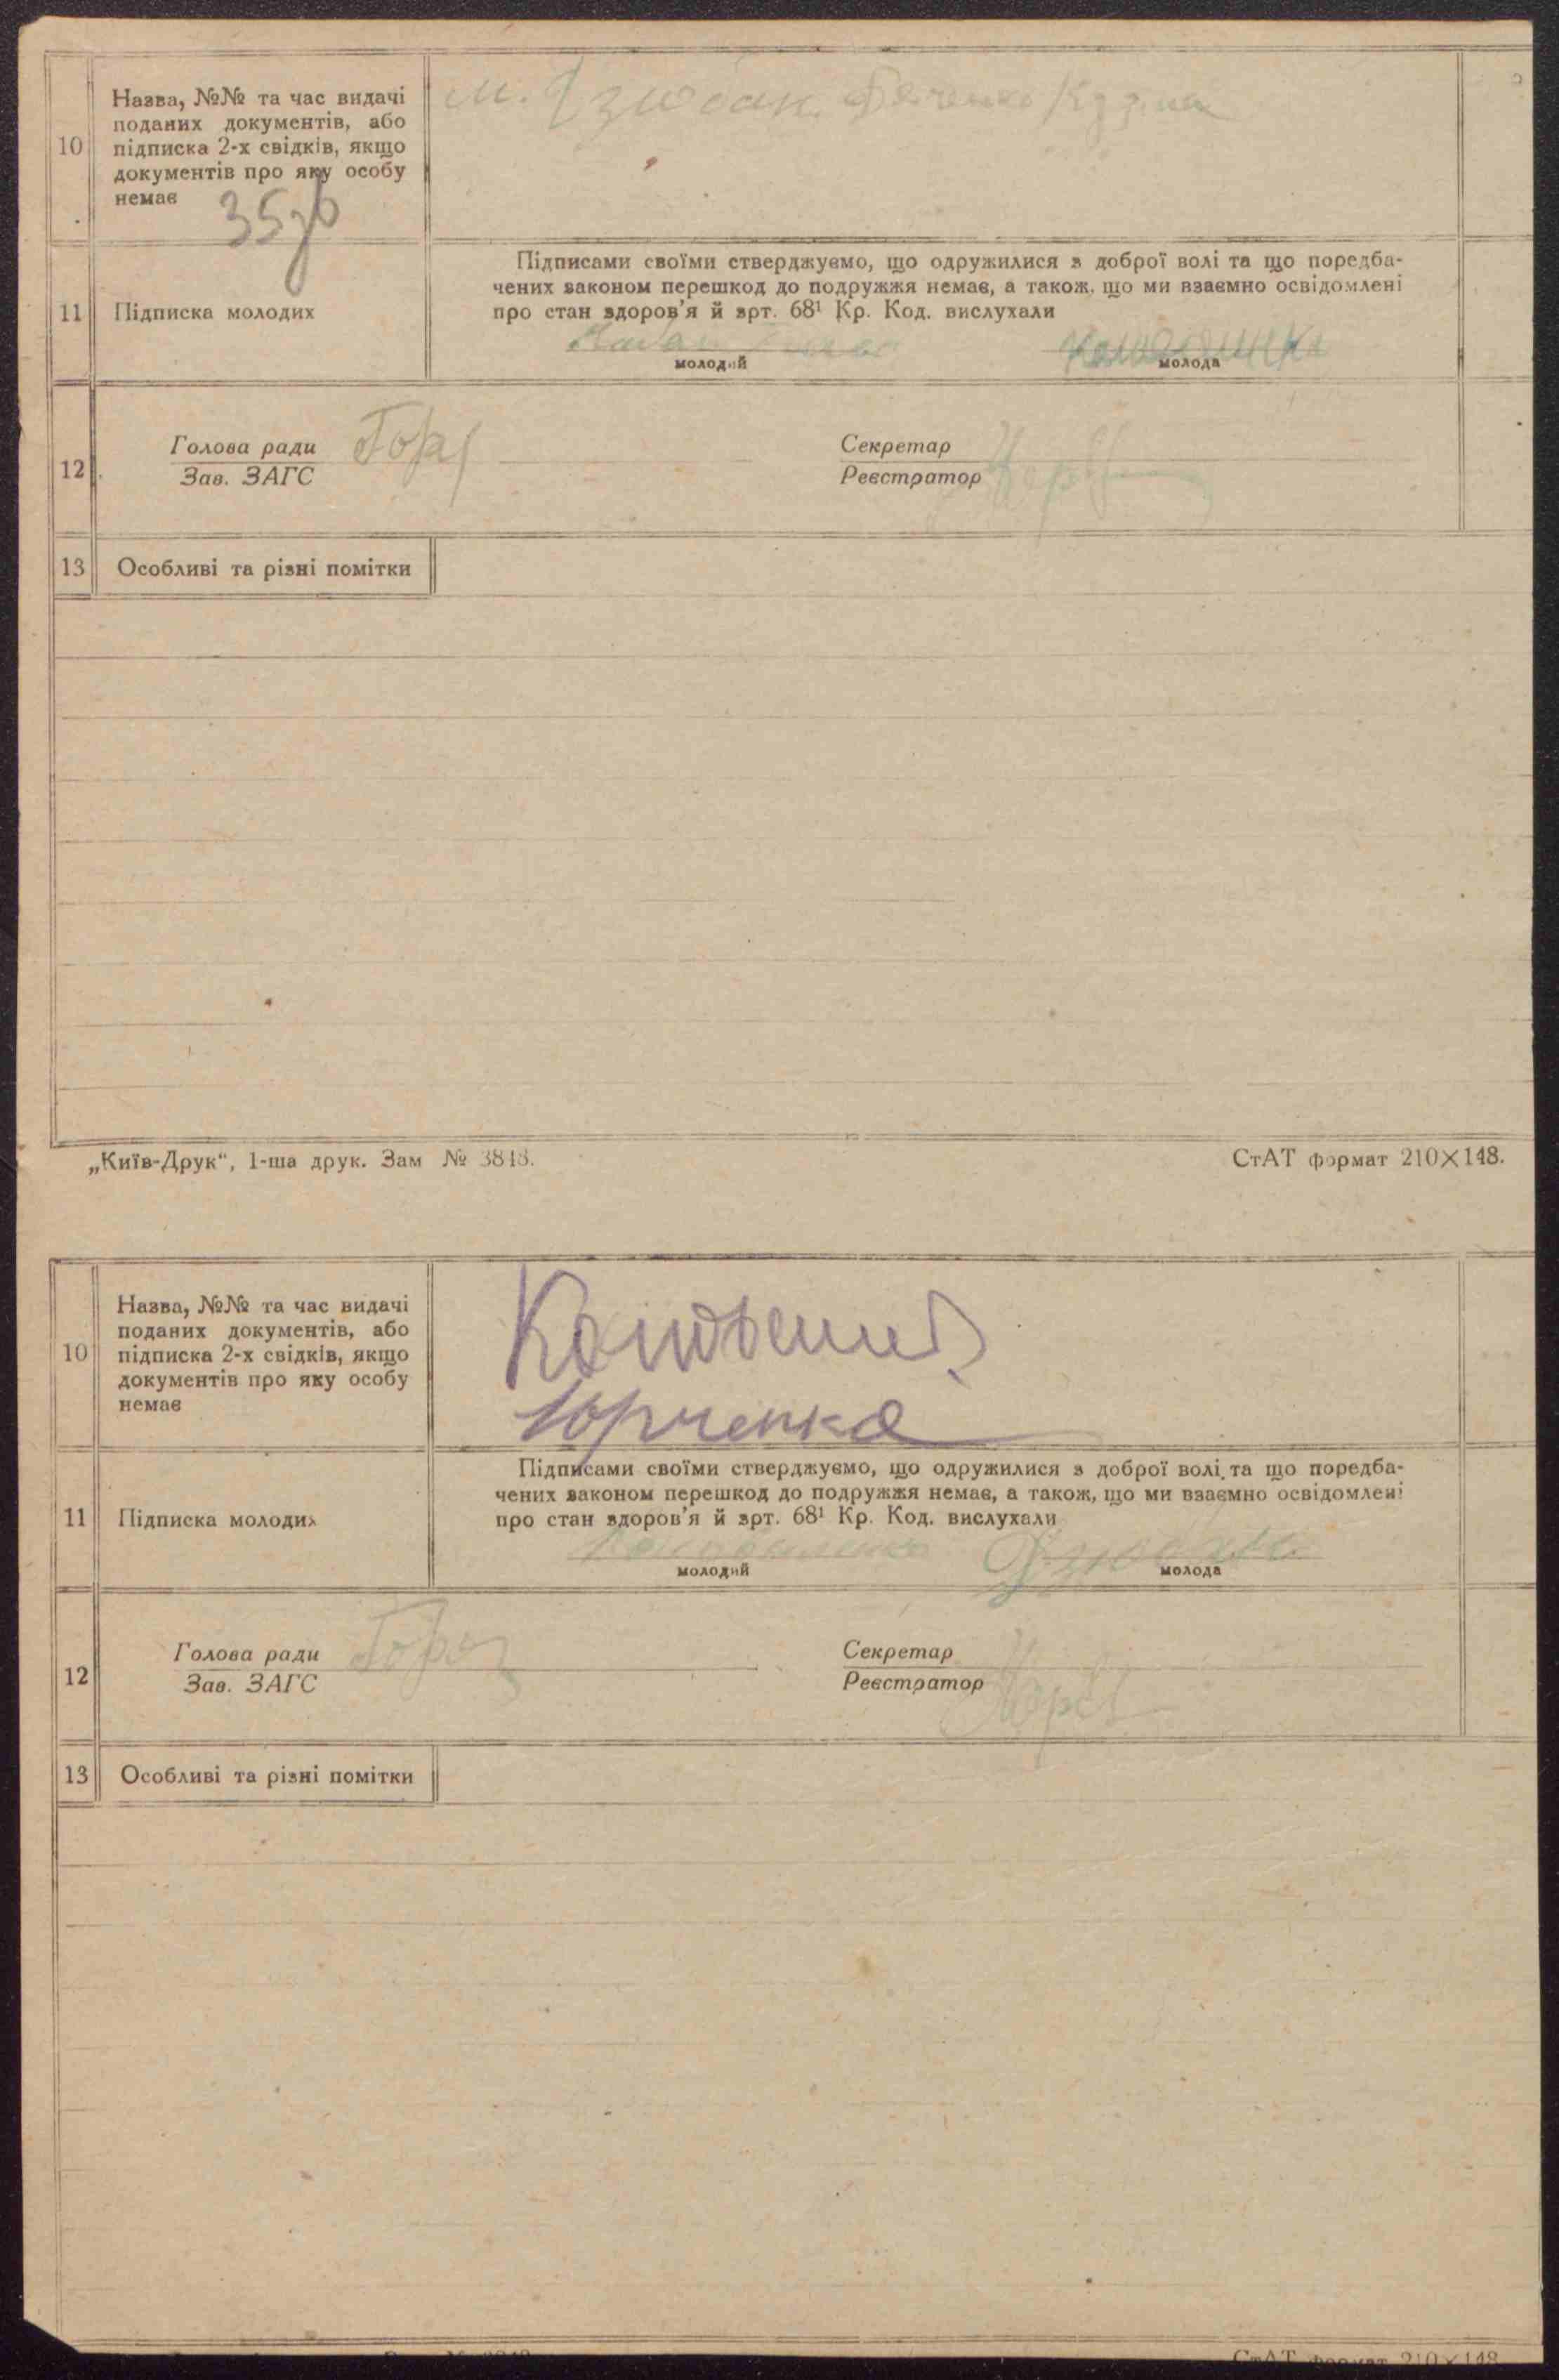 10
Назва, №№ та час видачі
поданих документів, або
підписка 2-х свідків, якщо
документів про яку особу
немає
35зб
11
Підписка молодих
Підписами своїми стверджуємо, що одружилися з доброї волі та що поредба-
чених законом перешкод до подружжя немає, а також, що ми взаємно освідомлені
про стан здоров'я й арт. 68¹ Кр. Код. вислухали
молодий
молода
12
Голова ради
Зав. ЗАГС
Секретар
Реєстратор
13
Особливі та різні помітки
„Київ-Друк“, 1-ша друк. Зам № 3848.
СтАТ формат 210×148.
10
Назва, №№ та час видачі
поданих документів, або
підписка 2-х свідків, якщо
документів про яку особу
немає
Юрченко
11
Підписка молодих
Підписами своїми стверджуємо, що одружилися з доброї волі та що поредба-
чених законом перешкод до подружжя немає, а також, що ми взаємно освідомлені
про стан здоров'я й арт. 68¹ Кр. Код. вислухали
молодий
молода
12
Голова ради
Зав. ЗАГС
Секретар
Реєстратор
13
Особливі та різні помітки
СтАТ формат 210×148